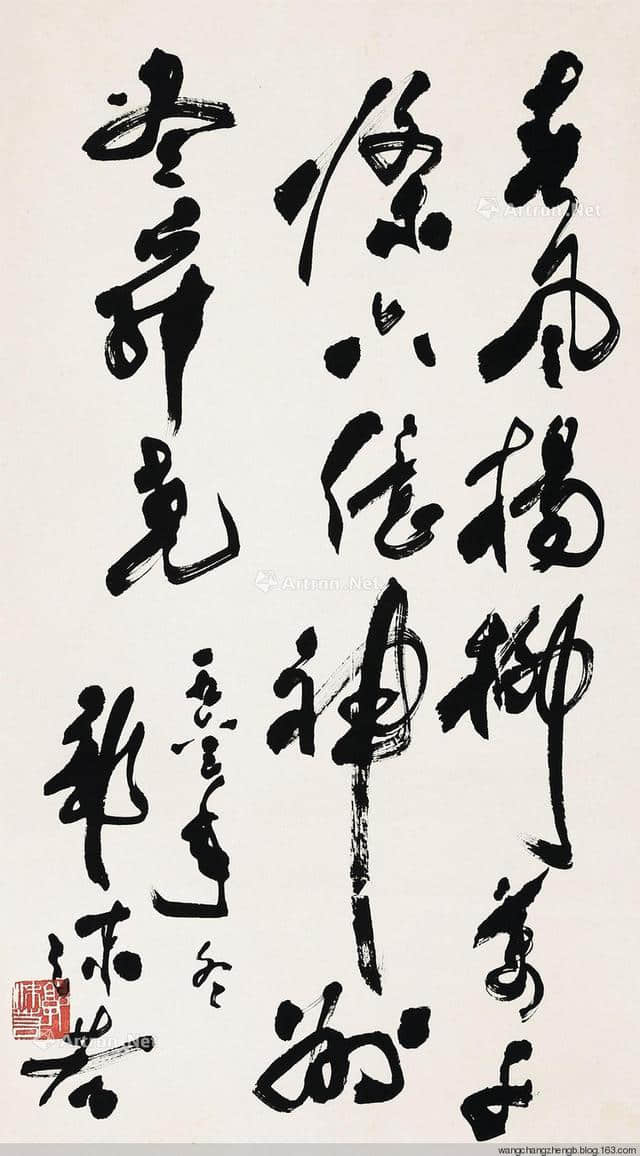 春風楊柳萬千
條六億神州
尽舜堯
一九六三年冬
郭沫若
郭沫若
Artron.Net
Artron.Net
Artron.Net
wangchangzhengb.blog.163.com